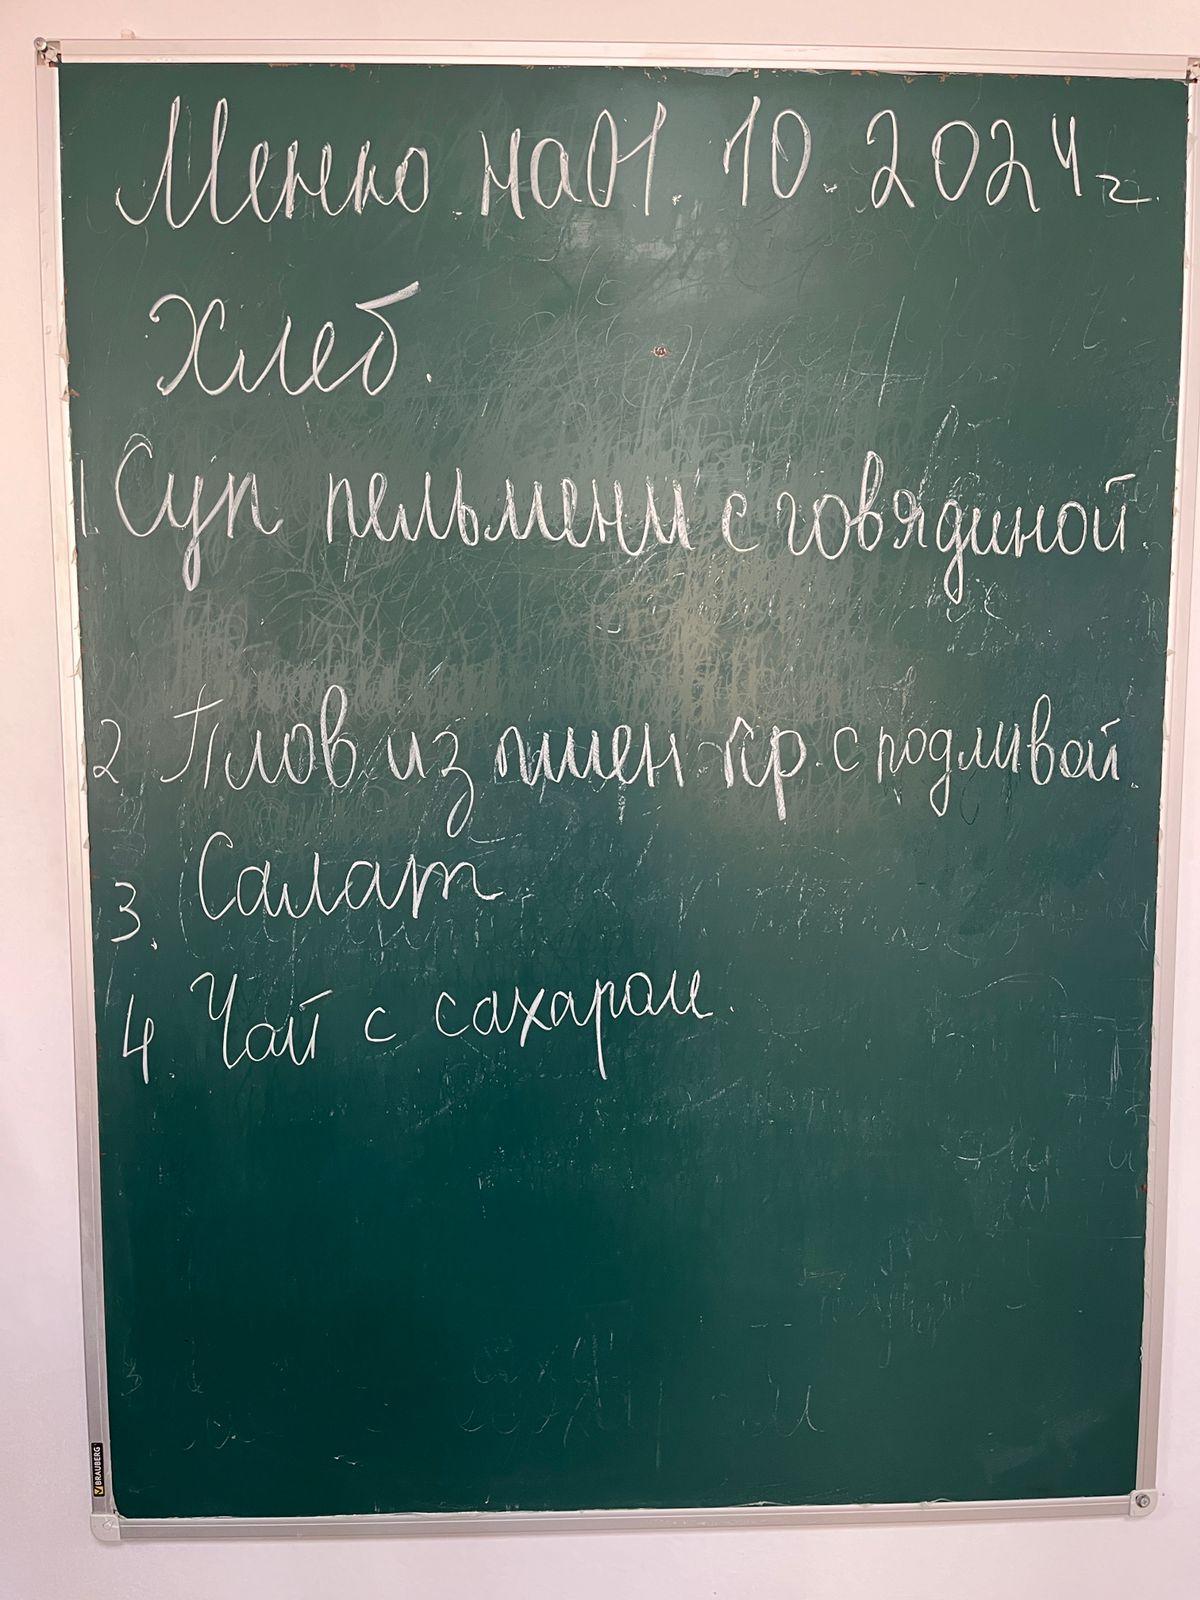 Меню на 01.10.2024г.
Хлеб.
1. Суп пельмени с говядиной.
2 Плов из пшен кр. с подливой
3. Салат
4. Чай с сахаром.
BRAUBERG